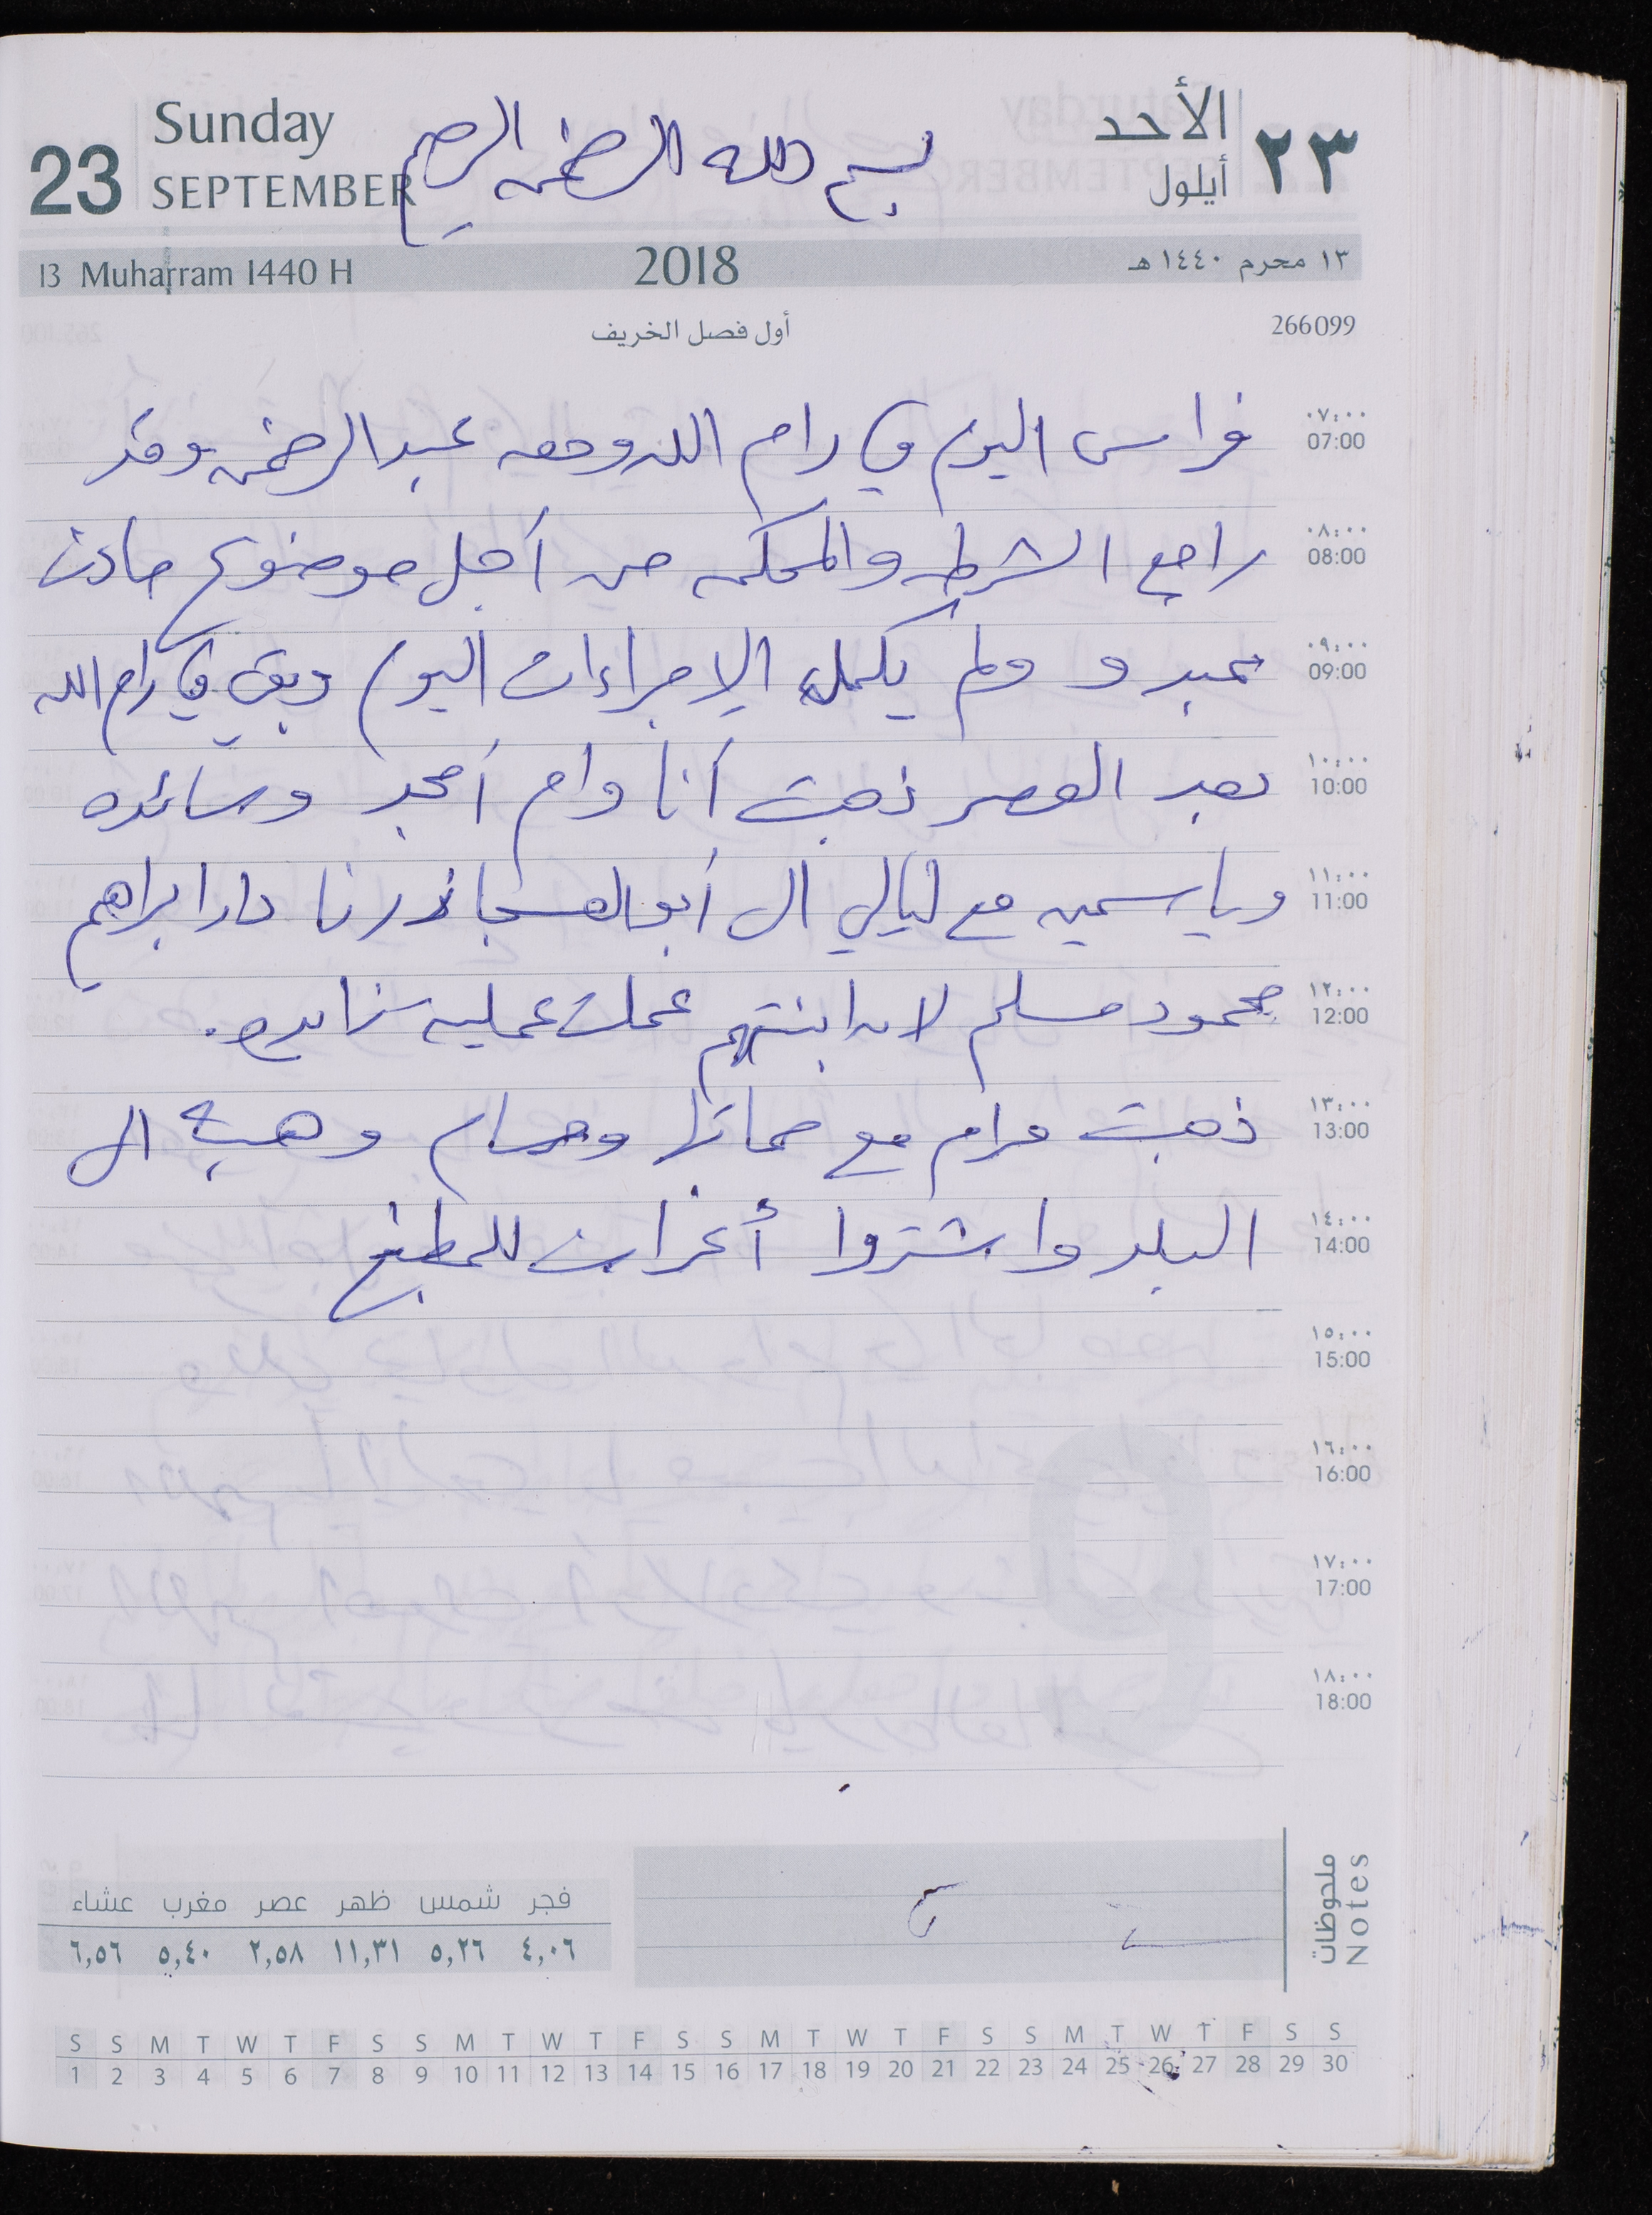 23 Sunday SEPTEMBER
بسم الله الرحمن الرحيم
الأحد ٢٣ أيلول
13 Muharram 1440 H 2018 ١٣ محرم ١٤٤٠ هـ
أول فصل الخريف 266099
٠٧:٠٠ 07:00 فراس اليوم في رام الله ومعه عبد الرحمن وقد
٠٨:٠٠ 08:00 راجع الشرطه والمحكمه من أجل موضوع حادث
٠٩:٠٠ 09:00 عبد و ولم يكمل الإجراءات اليوم وبقي في رام الله
١٠:٠٠ 10:00 بعد العصر ذهبت أنا وام أمجد وسائده
١١:٠٠ 11:00 وياسمين مع ليالي الى أبو العسجا زرنا دار ابراهيم
١٢:٠٠ 12:00 محمود مسلم لان ابنتهم عملت عمليه زايده.
١٣:٠٠ 13:00 ذهبت مرام مع حماتها وحسام وهبه الى
١٤:٠٠ 14:00 البلد واشتروا أغراض للمطبخ
١٥:٠٠ 15:00
١٦:٠٠ 16:00
١٧:٠٠ 17:00
١٨:٠٠ 18:00
ملحوظات Notes
فجر شمس ظهر عصر مغرب عشاء
٤,٠٦ ٥,٢٦ ١١,٣١ ٢,٥٨ ٥,٤٠ ٦,٥٦
S S M T W T F S S M T W T F S S M T W T F S S M T W T F S S
1 2 3 4 5 6 7 8 9 10 11 12 13 14 15 16 17 18 19 20 21 22 23 24 25 26 27 28 29 30